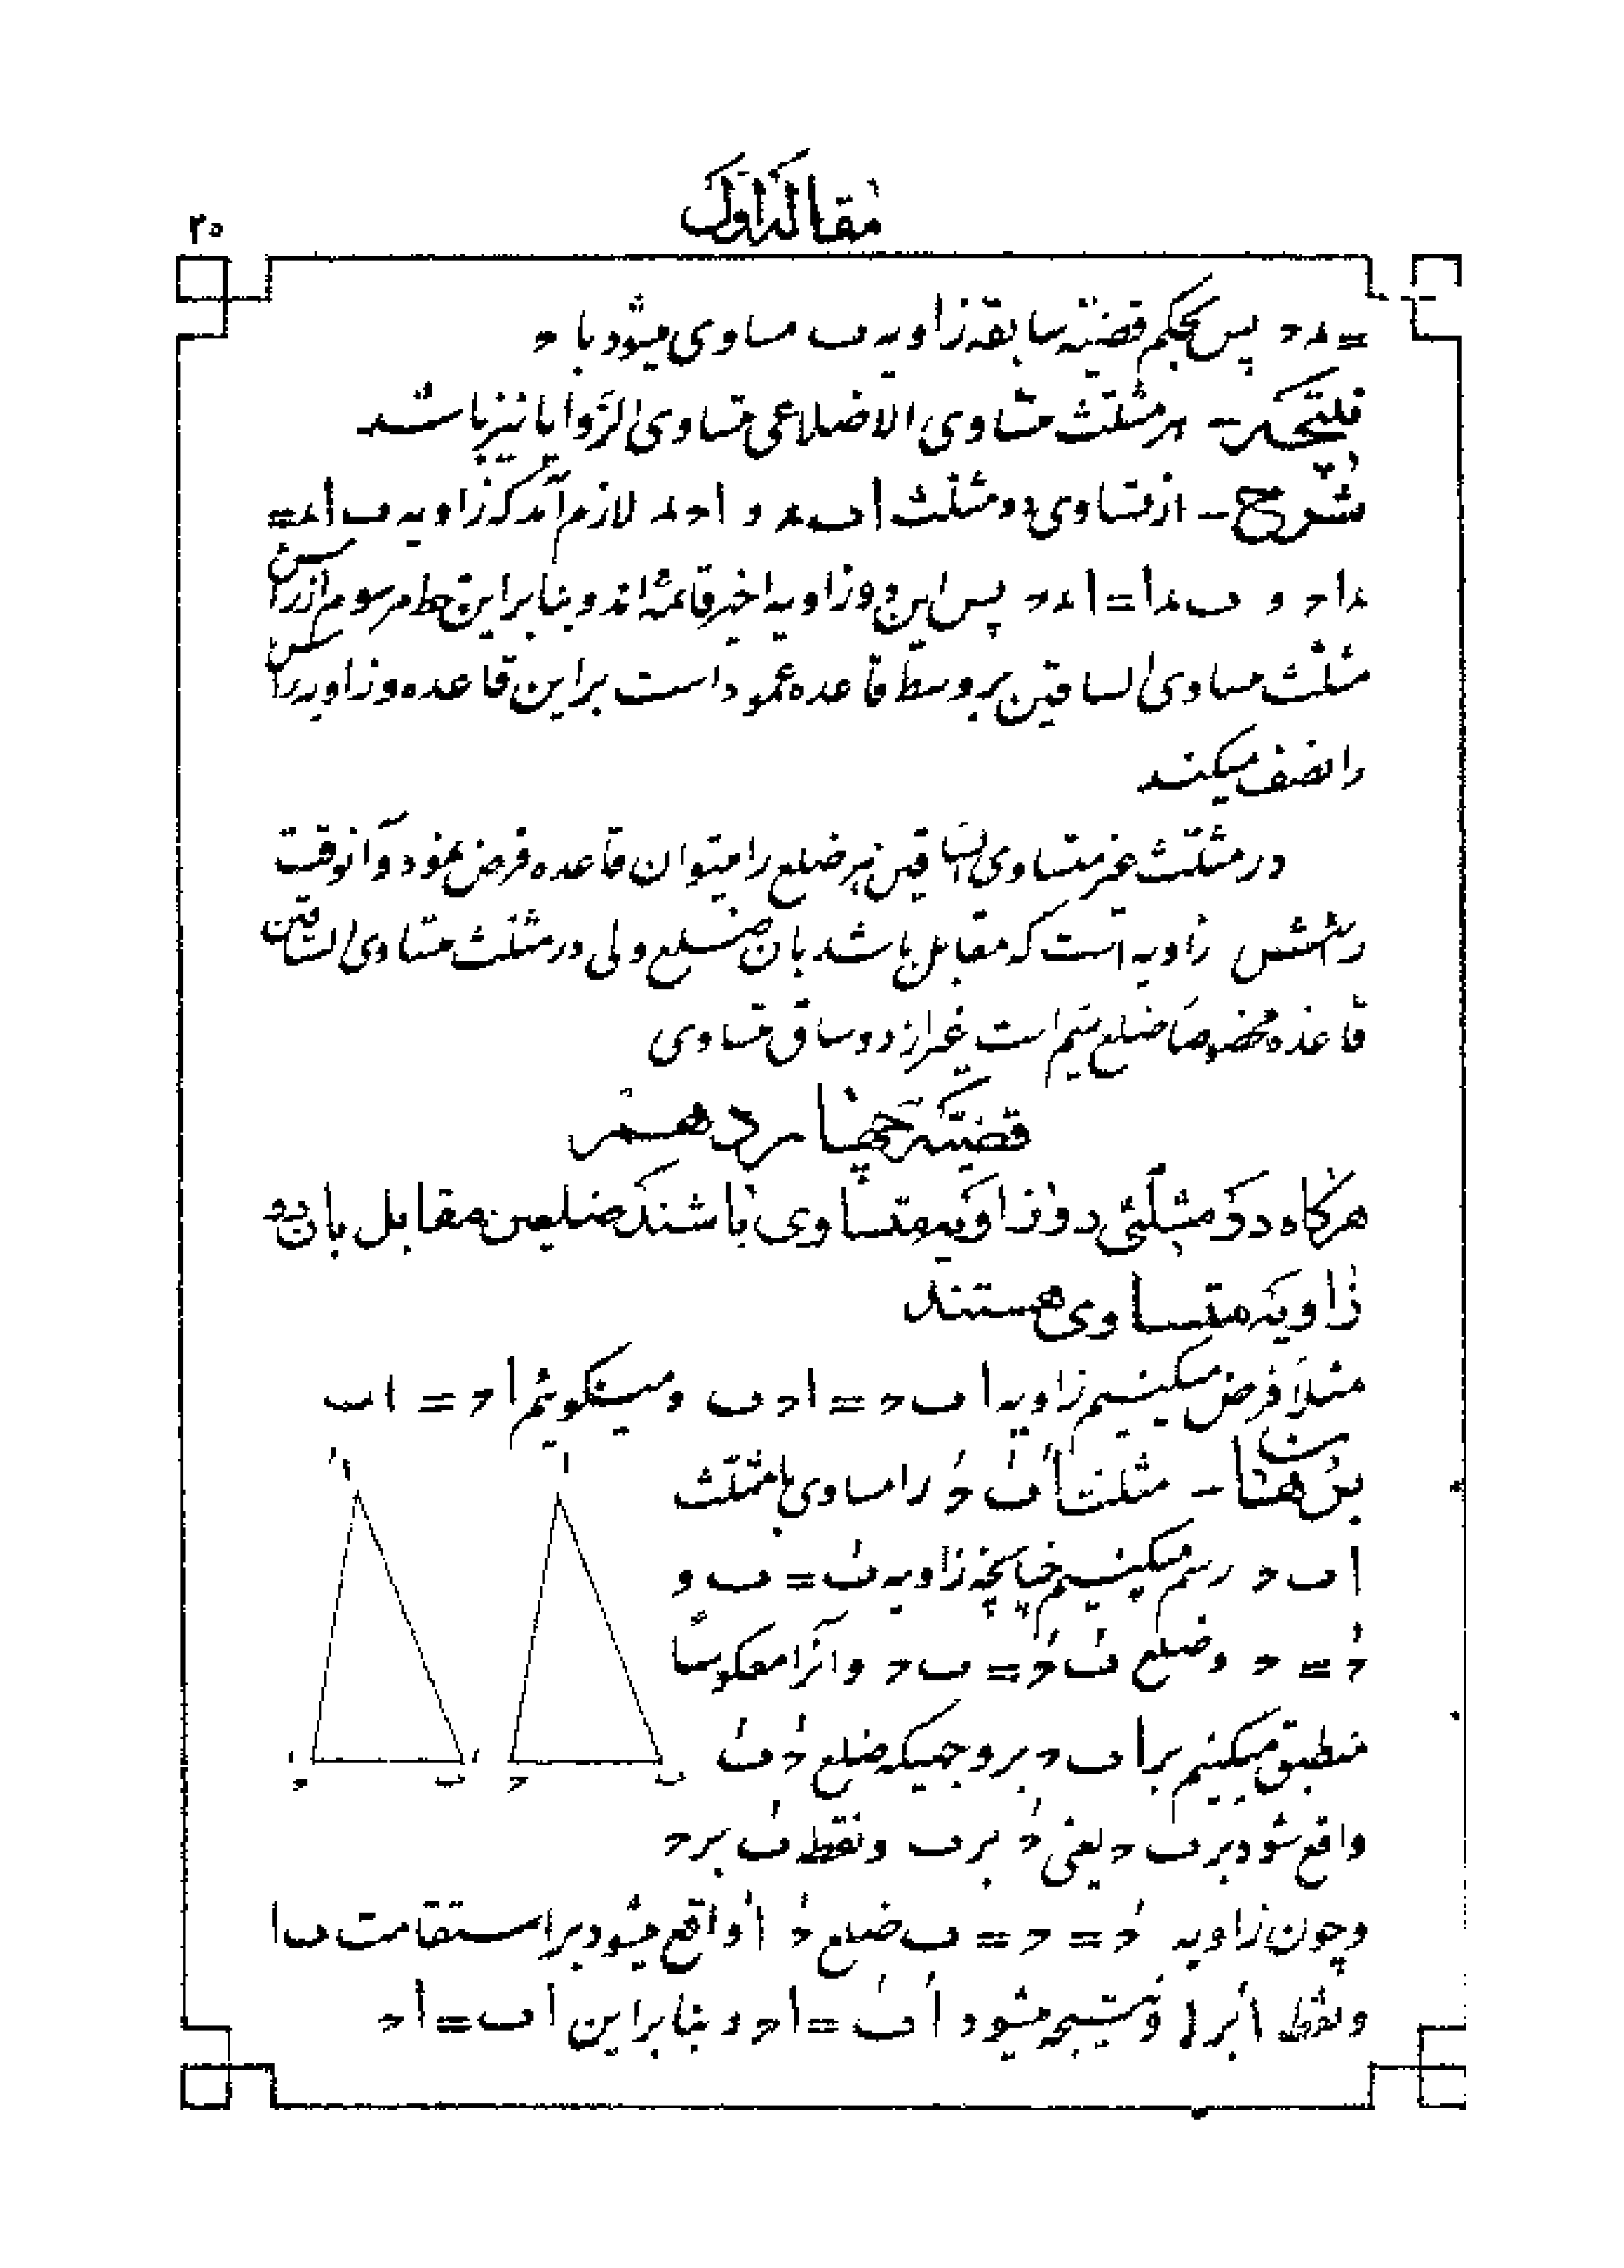 مقاله اول
۲۰
= ء ح پس بحکم قضیّه سابقه زاویه ب مساوی میشود با ح
نتیجه - هر مثلث متساوی الاضلاعی متساوی الزّوایا نیز باشد
شرح - از تساوی دو مثلث ا ب ء و ا ح ء لازم آمد که زاویه ب ا ء =
ء ا ح و ب ء ا = ا ء ح پس این دو زاویه اخیر قائمه اند و بنابراین خط مرسوم از راس
مثلث مساوی الساقین بر وسط قاعده عمود است بر این قاعده و زاویه راس
را نصف میکند
در مثلث غیر متساوی الساقین هر ضلع را میتوان قاعده فرض نمود و آنوقت
راسش زاویه است که مقابل باشد بان ضلع ولی در مثلث متساوی الساقین
قاعده مخصوصا ضلع سیم است غیر از دو ساق متساوی
قضیّه چهاردهم
هرگاه در مثلثی دو زاویه متساوی باشند ضلعین مقابل بان دو
زاویه متساوی هستند
مثلاً فرض میکنیم زاویه ا ب ح = ا ح ب و میگوئیم ا ح = ا ب
برهان - مثلث اَ بَ حَ را مساوی با مثلث
ا ب ح رسم میکنیم چنانچه زاویه بَ = ب و
حَ = ح و ضلع بَ حَ = ب ح و آنرا معکوساً
منطبق میکنیم بر ا ب ح بر وجهیکه ضلع حَ بَ
واقع شود بر ب ح یعنی حَ بر ب و نقطه بَ بر ح
و چون زاویه حَ = ح = ب ضلع حَ اَ واقع میشود بر استقامت ب ا
و نقطه اَ بر ا و نتیجه میشود اَ بَ = ا ح و بنابراین ا ب = ا ح
اَ
ا
حَ
بَ
ح
ب